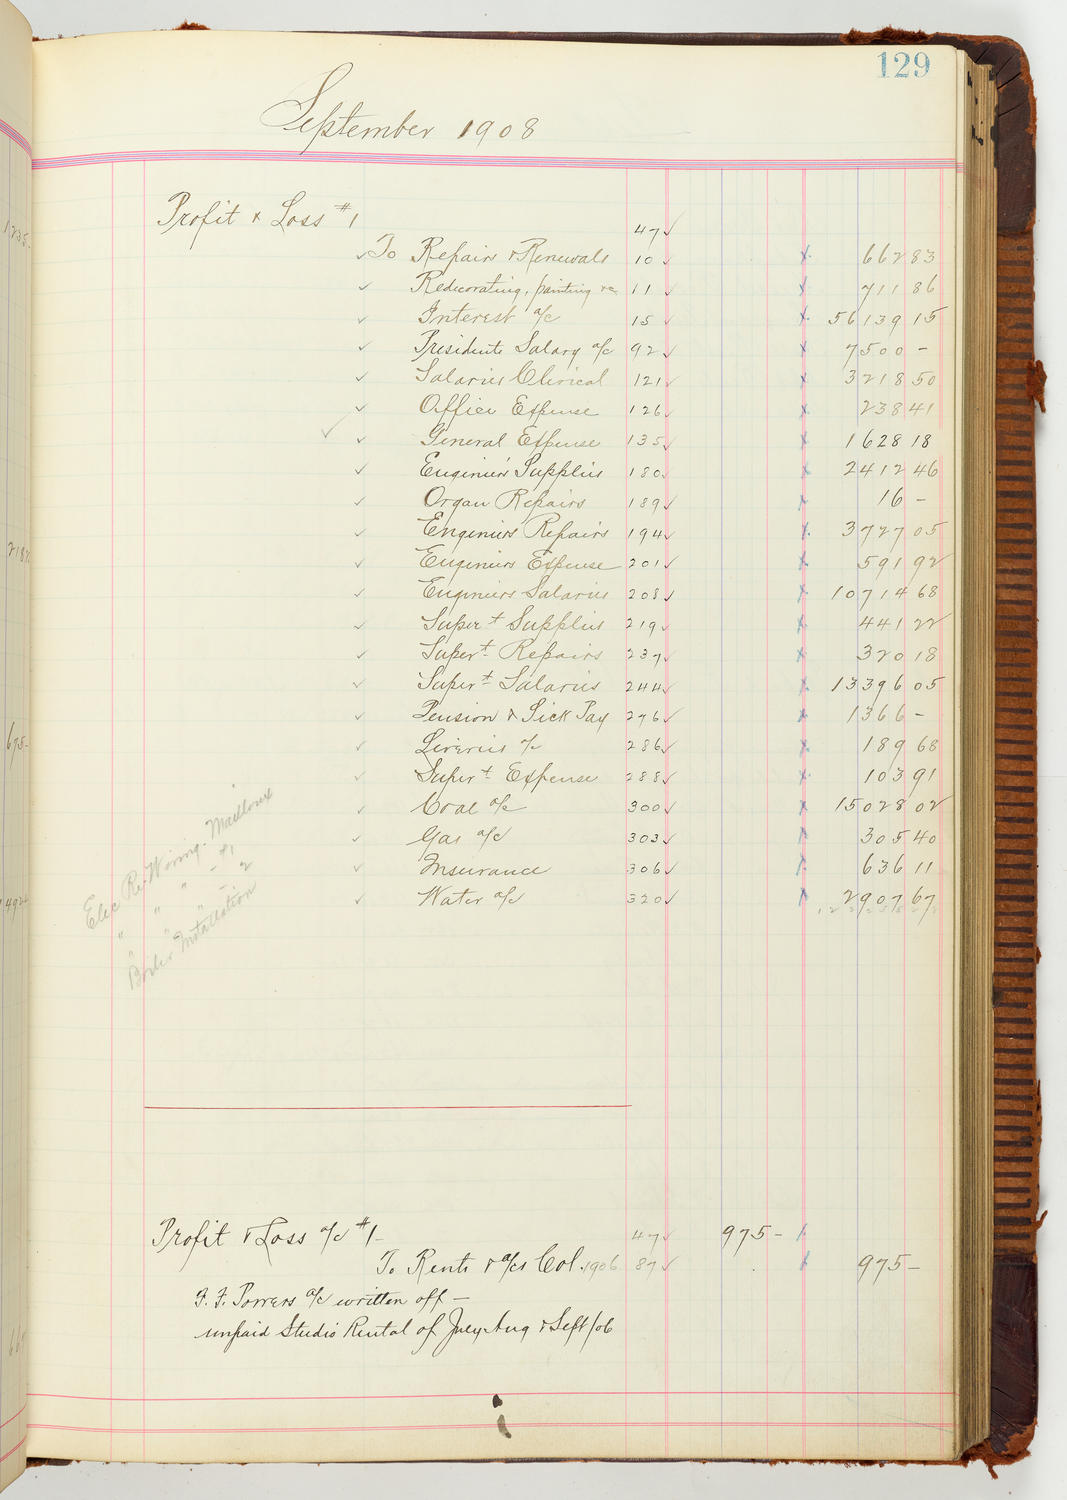 129
September 1908
Profit & Loss #1 47 ✓
✓ To Repairs & Renewals 10 ✓ x 662 83
✓ Redecorating, painting &c 11 ✓ x 711 86
✓ Interest a/c 15 ✓ x 56139 15
✓ Presidents Salary a/c 92 ✓ x 7500 –
✓ Salaries Clerical 121 ✓ x 3218 50
✓ Office Expense 126 ✓ x 238 41
✓ General Expense 135 ✓ x 1628 18
✓ Engineers Supplies 180 ✓ x 2412 46
✓ Organ Repairs 189 ✓ x 16 –
✓ Engeniers Repairs 194 ✓ x 3727 05
✓ Engeniers Expense 201 ✓ x 591 92
✓ Engeniers Salaries 208 ✓ x 10714 68
✓ Supert Supplies 219 ✓ x 441 22
✓ Supert Repairs 237 ✓ x 320 18
✓ Supert Salaries 244 ✓ x 13396 05
✓ Pension & Sick Pay 276 ✓ x 1366 –
✓ Liveries a/c 286 ✓ x 189 68
✓ Supert Expense 288 ✓ x 103 91
✓ Coal a/c 300 ✓ x 15028 02
✓ Gas a/c 303 ✓ x 305 40
✓ Insurance 306 ✓ x 636 11
✓ Water a/c 320 ✓ x 2907 67
Elec Re-Wiring. Mailloux
" " " - #1
" " " - 2
Boiler Installation
Profit & Loss a/c #1 – 47 ✓ 975 –
To Rents & a/cs Col. 1906 87 ✓ 975 –
F. F. Powers a/c written off –
unpaid Studio Rental of July Aug & Sept/06
1235 –
218
675 –
492